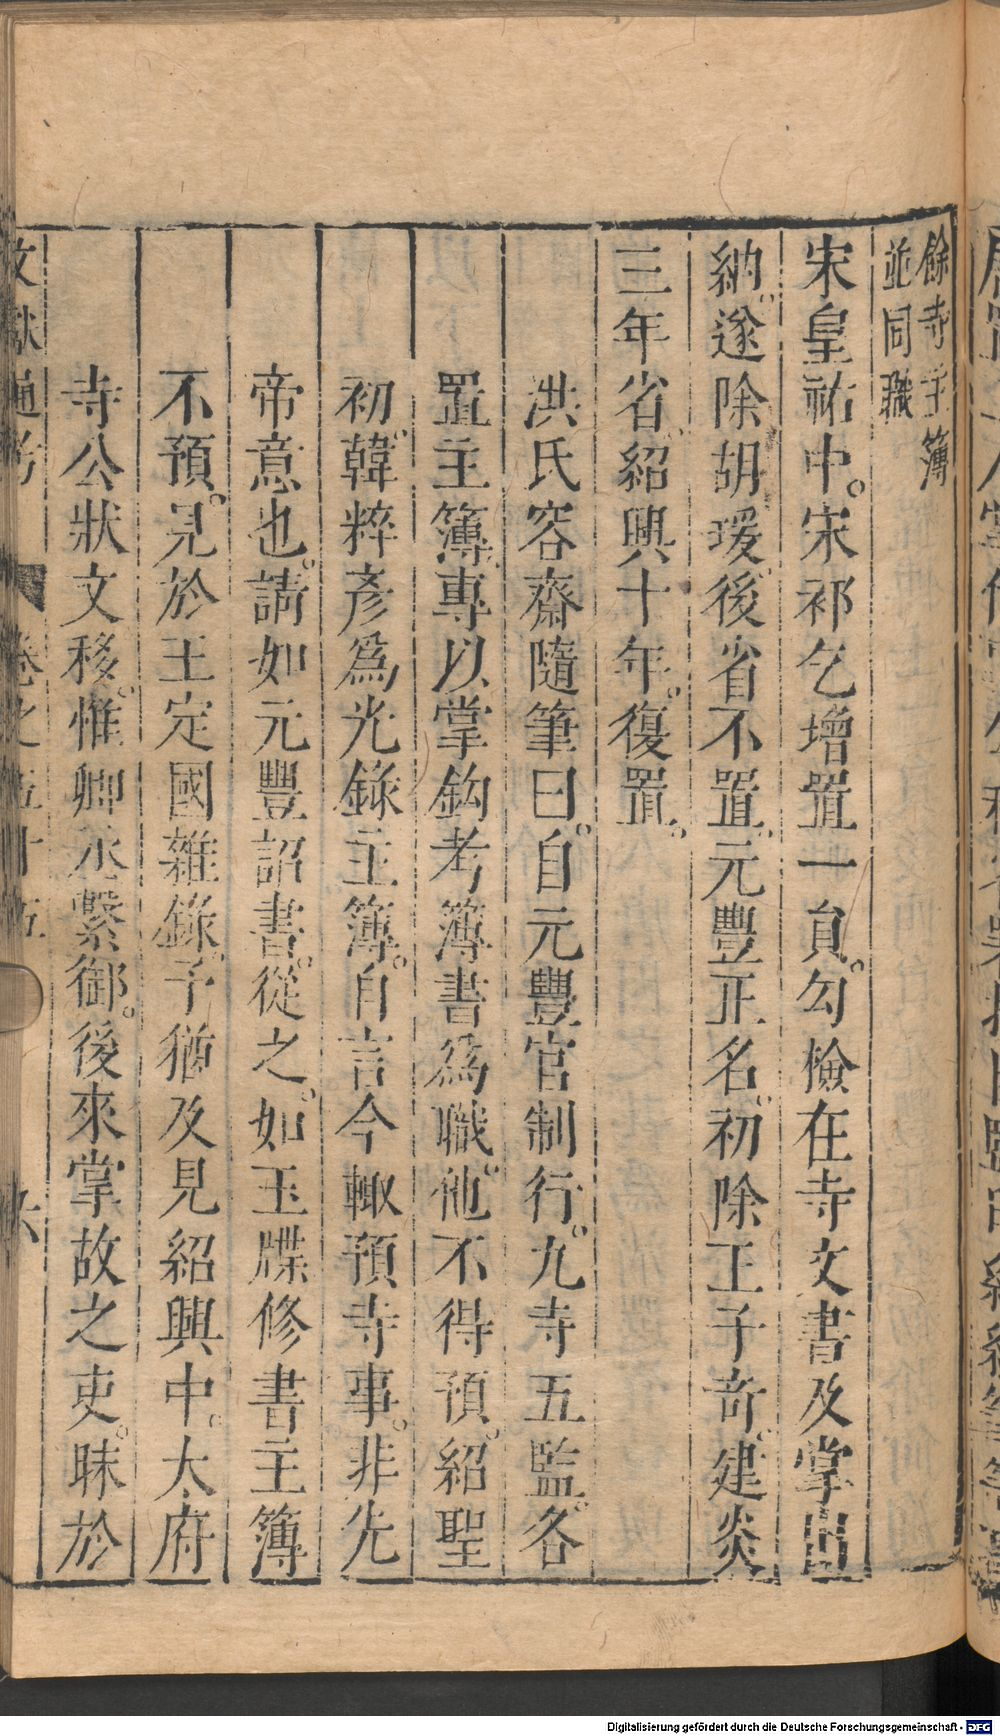 餘寺主簿
並同職
宋皇祐中。宋祁乞增置一員。勾檢在寺文書及掌出
納。遂除胡瑗後省不置。元豐正名。初除王子奇。建炎
三年省。紹興十年。復置。
洪氏容齋隨筆曰。自元豐官制行。九寺五監。各
置主簿。專以掌鈎考簿書爲職。他不得預。紹聖
初。韓粹彥爲光錄主簿。自言今輙預寺事。非先
帝意也。請如元豐詔書。從之。如玉牒修書主簿
不預。見於王定國雜錄。予猶及見紹興中。太府
寺公狀文移。惟卿丞繫御。後來掌故之吏。昧於
文獻通考 卷之五十五 六
Digitalisierung gefördert durch die Deutsche Forschungsgemeinschaft - DFG